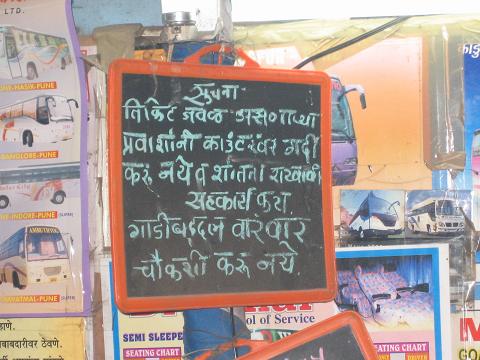 सूचना
तिकिट जवळ असणाऱ्या
प्रवाशांनी काउंटरवर गर्दी
करू नये व शांतता राखावी
सहकार्य करा
गाडीबद्दल वारंवार
चौकशी करू नये.
LTD.
NASIK-PUNE
BANGLORE-PUNE
INDORE-PUNE
YAVATMAL-PUNE
ool of Service
SEMI SLEEPE
SEATING CHART
SEATING CHART
बाबदारीवर ठेवणे.